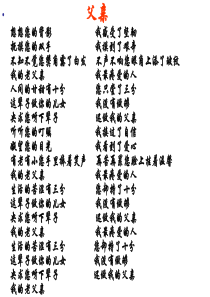 父亲
想想您的背影 我感受了坚韧
抚摸您的双手 我摸到了艰辛
不知不觉您鬓角露了白发 不声不响您眼角上添了皱纹
我的老父亲 我最疼爱的人
人间的甘甜有十分 您只尝了三分
这辈子做您的儿女 我没有做够
央求您呀下辈子 还做我的父亲
听听您的叮嘱 我接过了自信
凝望您的目光 我看到了爱心
有老有小您手里捧着笑声 再苦再累您脸上挂着温馨
我的老父亲 我最疼爱的人
生活的苦涩有三分 您却持了十分
这辈子做您的儿女 我没有做够
央求您呀下辈子 还做我的父亲
我的老父亲 我最疼爱的人
生活的苦涩有三分 您却持了十分
这辈子做您的儿女 我没有做够
央求您呀下辈子 还做我的父亲
我的老父亲